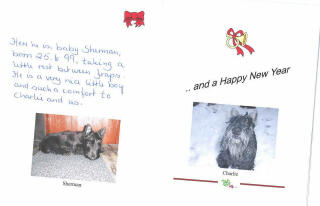 Here he is, baby Sherman,
born 25.6.99, taking a
little rest between
He is a very nice little boy
and such a comfort to
Charlie and us.
Sherman
... and a Happy New Year
Charlie